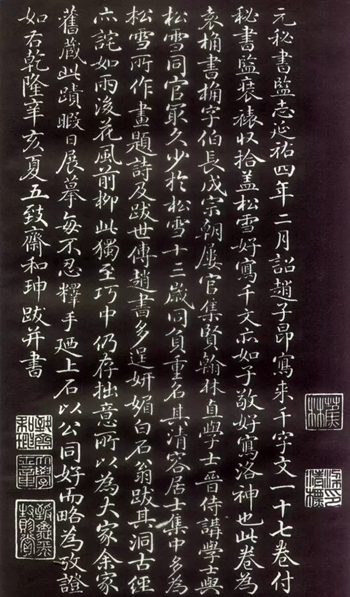 元秘書監志延祐四年二月詔趙子昂寫來千字文一十七卷付
秘書監裱褙收拾蓋松雪好寫千文亦如子敬好寫洛神也此卷為
袁桷書桷字伯長成宗朝屢官集賢翰林直學士晉侍講學士與
松雪同官最久少於松雪十三歲同負重名其清容居士集中多為
松雪所作畫題詩及跋世傳趙書多逞妍媚白石翁跋其洞古經
亦詫如雨後花風前柳此獨至巧中仍存拙意所以為大家余家
舊藏此蹟暇日展摹每不忍釋手廼上石以公同好而略為攷證
如右乾隆辛亥夏五致齋和珅跋并書